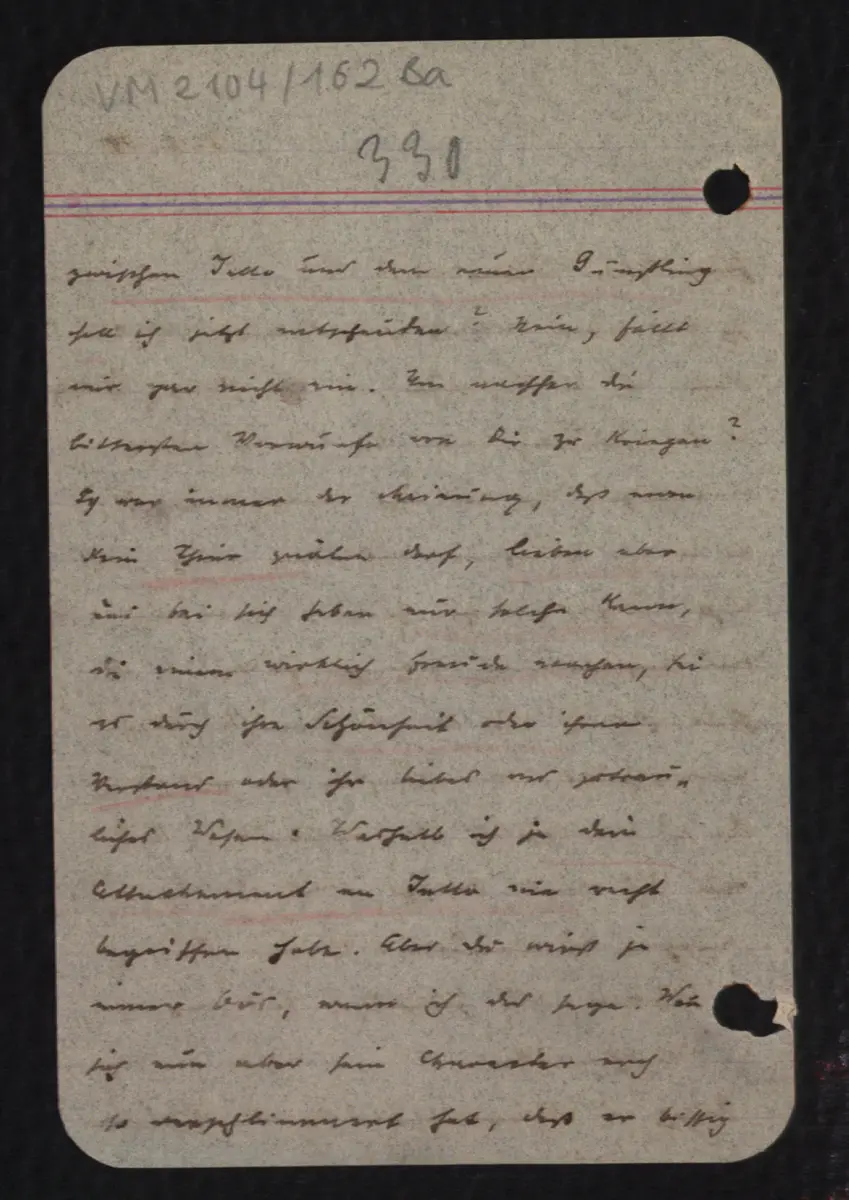 VM 2104/162 Ba
330
zwischen Tello und dem neuen Günstling
soll ich jetzt entscheiden? Nein, fällt
mir gar nicht ein. Um nachher die
bittersten Vorwürfe von Dir zu kriegen?
Ich war immer der Meinung, daß man
kein Thier quälen darf, lieben aber
und bei sich haben nur solche kann,
die einem wirklich Freude machen, sei
es durch ihre Schönheit oder ihren
Verstand oder ihr liebes und zutrau„
liches Wesen. Weshalb ich ja dein
Attachement an Tello nie recht
begriffen habe. Aber du wirst ja
immer bös, wenn ich das sage. Wenn
sich nun aber sein Charakter noch
so verschlimmert hat, daß er bissig